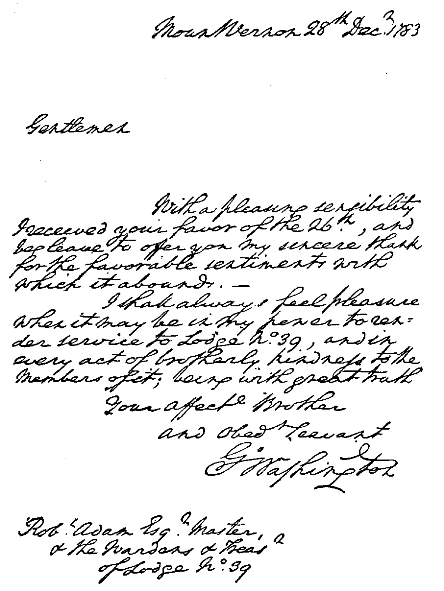 Mount Vernon 28th Decr. 1783
Gentlemen
With a pleasing sensibility
I received your favor of the 26th., and
beg leave to offer you my sincere thank
for the favorable sentiments with
which it abounds. —
I shall always feel pleasure
when it may be in my power to ren-
der service to Lodge No. 39, and in
every act of brotherly kindness to the
Members of it; being with great truth
Your affecte Brother
and obedt Servant
Go Washington
Robt. Adam Esqr. Master,
& the Wardens & Treasr
of Lodge No. 39